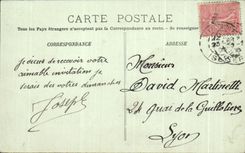 CARTE POSTALE
Tous les Pays étrangers n'acceptent pas la Correspondance au recto. - Se renseigner
CORRESPONDANCE
ADRESSE
Je viens de recevoir votre
aimable invitation je
serais des votres dimanche
Joseph
Monsieur
David Martinette
21 Quai de la Guillotière
Lyon